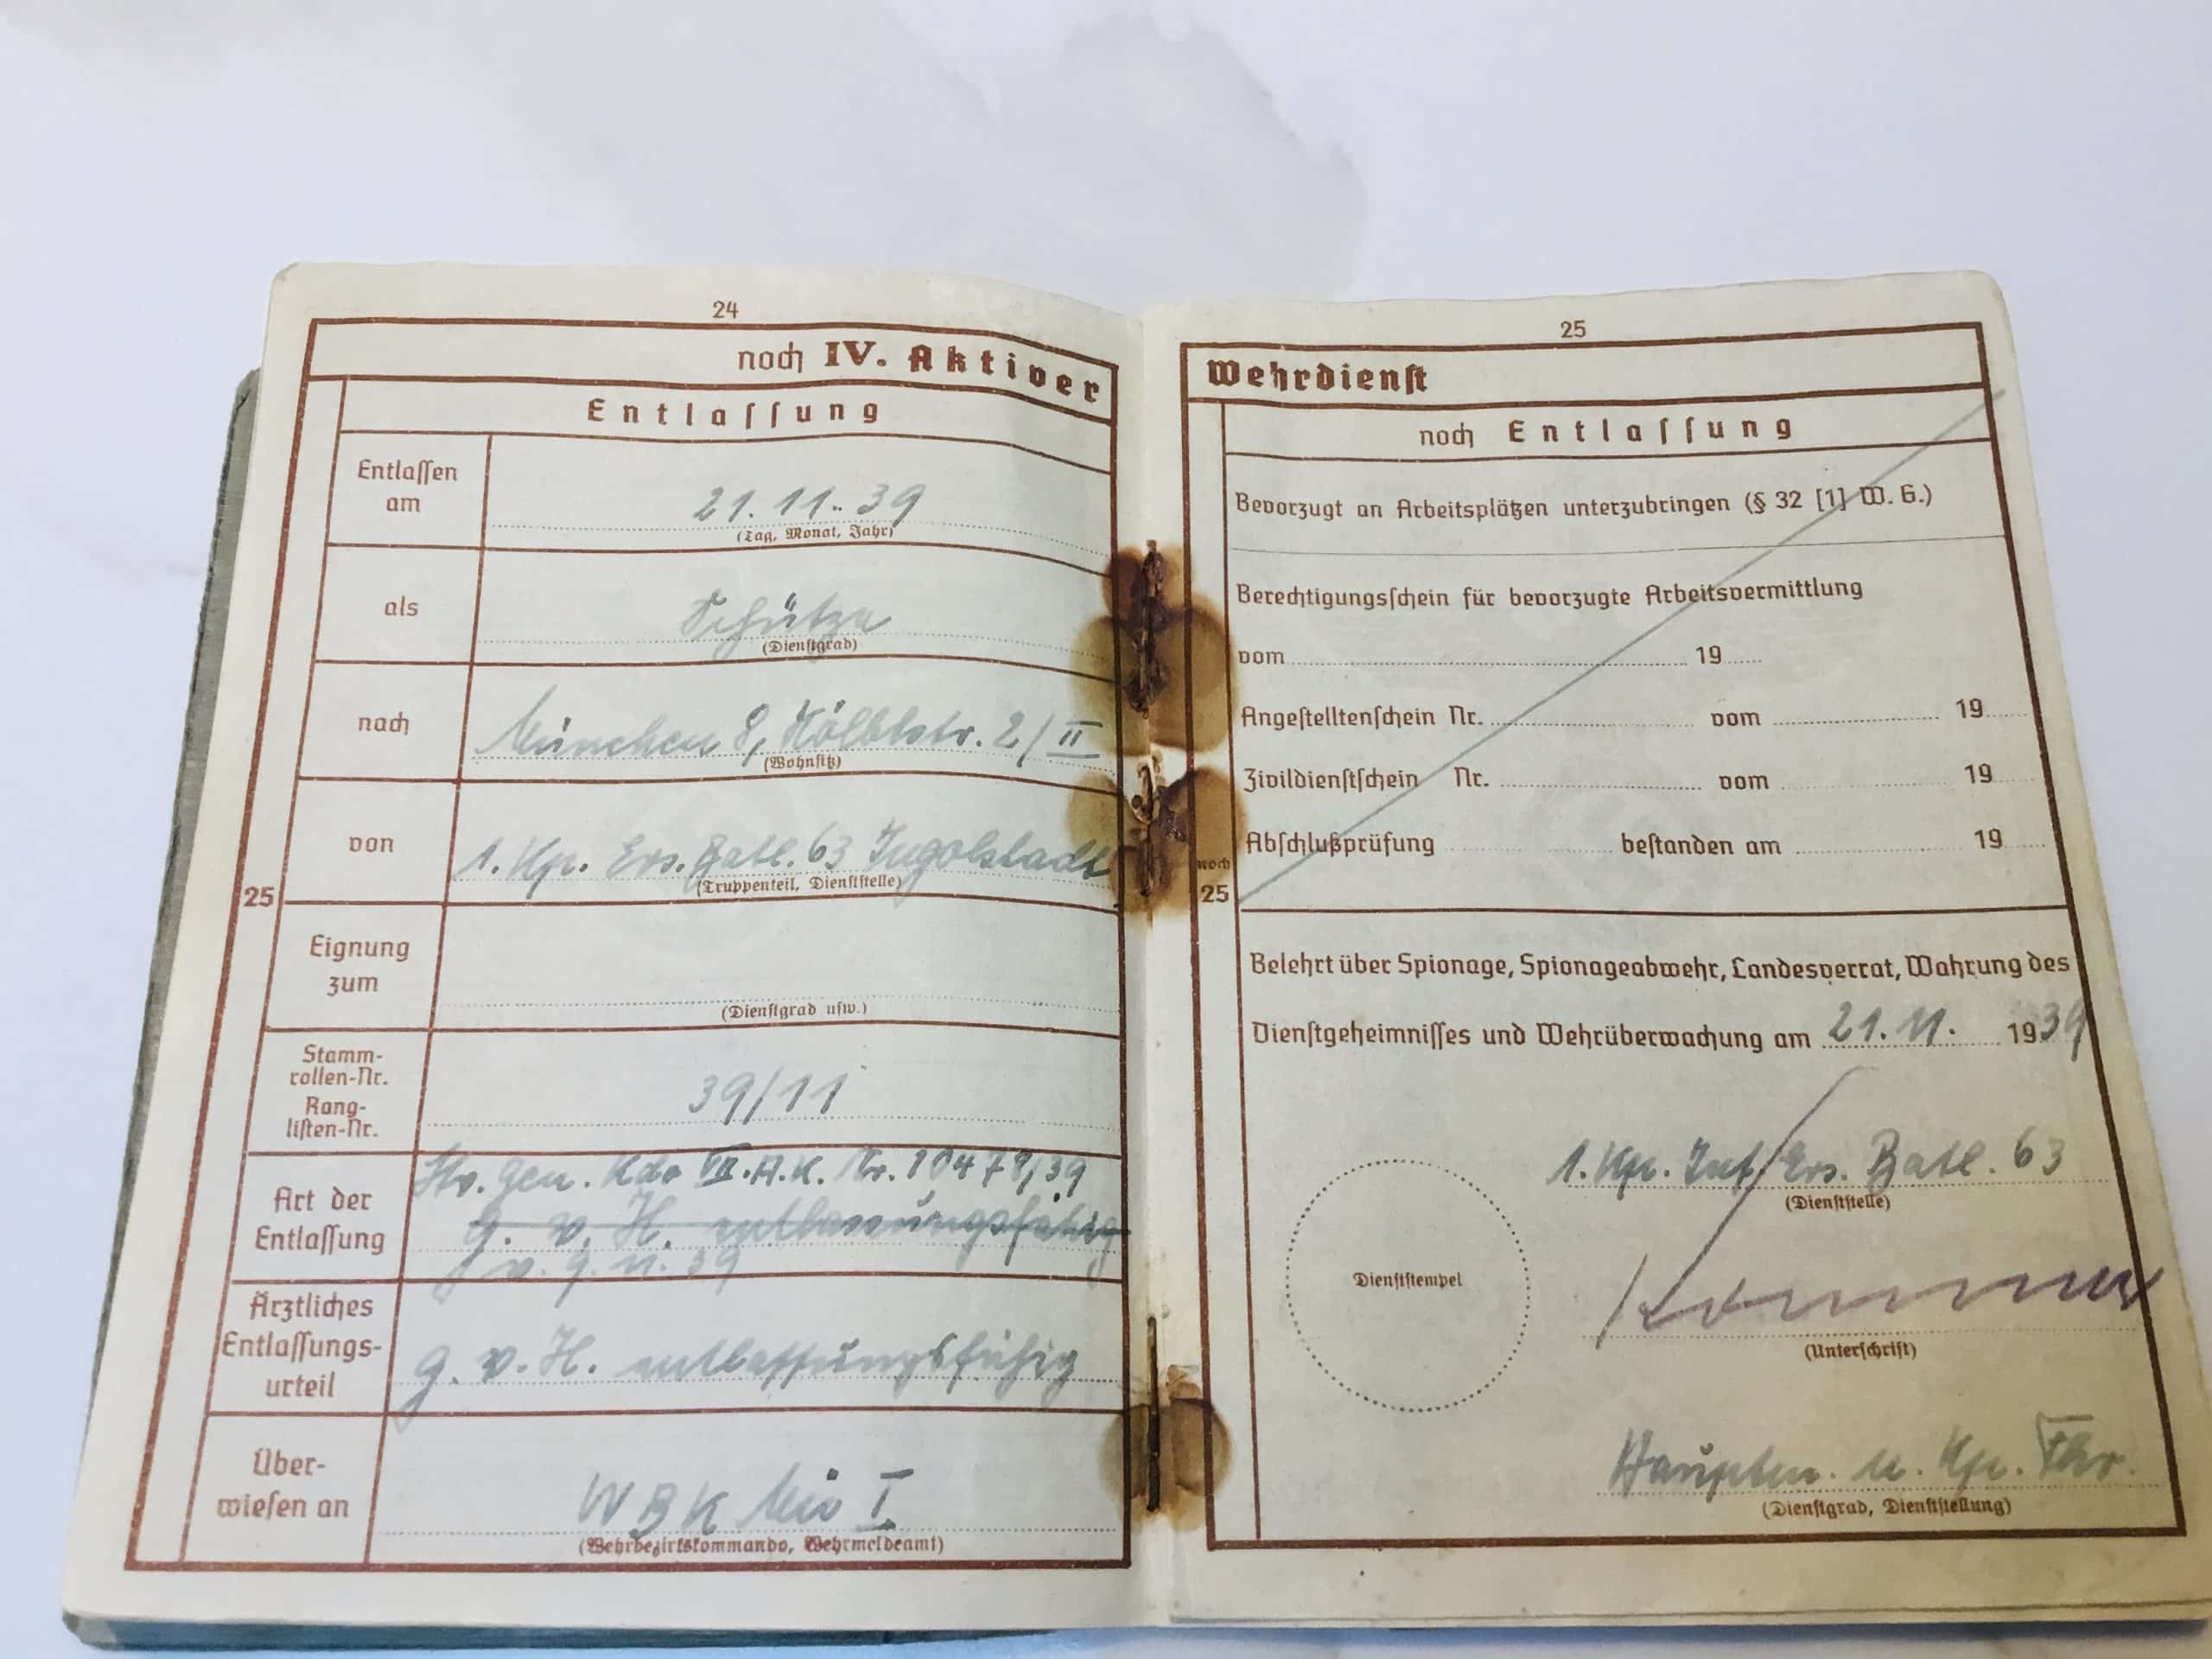 24
noch IV. Aktiver
Entlassung
Entlassen am
21.11.39
(Tag, Monat, Jahr)
als
Schütze
(Dienstgrad)
nach
München 8, 2/II
(Wohnsitz)
von
1. Kp. Ers. Batl. 63 Ingolstadt
(Truppenteil, Dienststelle)
25
Eignung zum
(Dienstgrad usw.)
Stamm-
rollen-Nr.
Rang-
listen-Nr.
39/11
Art der
Entlassung
Stv. Gen. Kdo VII. A.K. Nr. 10479/39
g. v. H. entlassungsfähig
v. 9.11.39
Ärztliches
Entlassungs-
urteil
g. v. H. entlassungsfähig
Über-
wiesen an
WBK Mü I
(Wehrbezirkskommando, Wehrmeldeamt)
25
Wehrdienst
noch Entlassung
Bevorzugt an Arbeitsplätzen unterzubringen (§ 32 [1] W. G.)
Berechtigungsschein für bevorzugte Arbeitsvermittlung
vom 19
Angestelltenschein Nr. vom 19
Zivildienstschein Nr. vom 19
Abschlußprüfung bestanden am 19
noch
25
Belehrt über Spionage, Spionageabwehr, Landesverrat, Wahrung des
Dienstgeheimnisses und Wehrüberwachung am 21.11. 1939
1. Kp. Inf. Ers. Batl. 63
(Dienststelle)
Dienststempel
(Unterschrift)
Hauptm. u. Kp. Fhr.
(Dienstgrad, Dienststellung)